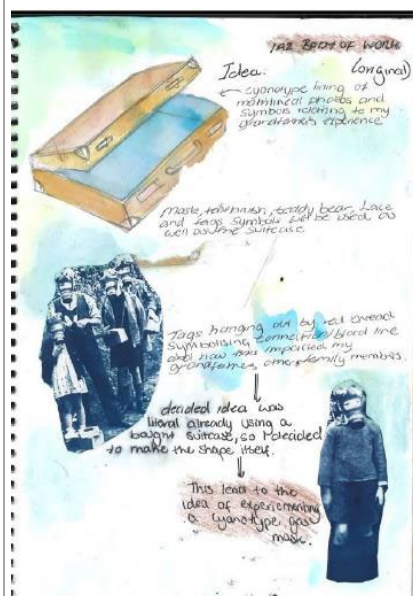 IA2 BODY OF WORK
Idea: (original)
cyanotype lining of
matrilineal photos and
symbols relating to my
grandfathers experience
Mask, toothbrush, teddy bear, Lace
and tags symbols will be used as
well as the suitcase.
Tags hanging out by red thread
Symbolising connective/blood line
and how this impacted my
grandfathers other family members.
decided idea was
literal already using a
bought suitcase, so I decided
to make the shape itself.
This lead to the
idea of experiementing
a cyanotype gas
mask.